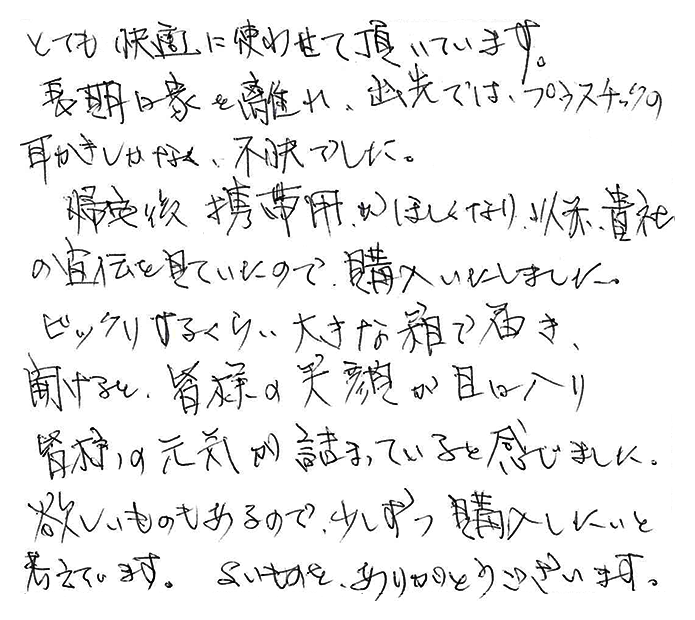 とても快適に使わせて頂いています。
長期は家を離れ、出先では、プラスチックの
耳かきしかなく、不快でした。
帰宅後携帯用がほしくなり、以来、貴社
の宣伝を見ていたので、購入いたしました。
ビックリするくらい大きな箱で届き、
開けると、皆様の笑顔が目に入り
皆様の元気が詰まっていると感じました。
欲しいものもあるので、少しずつ購入したいと
考えています。 よいものを、ありがとうございます。